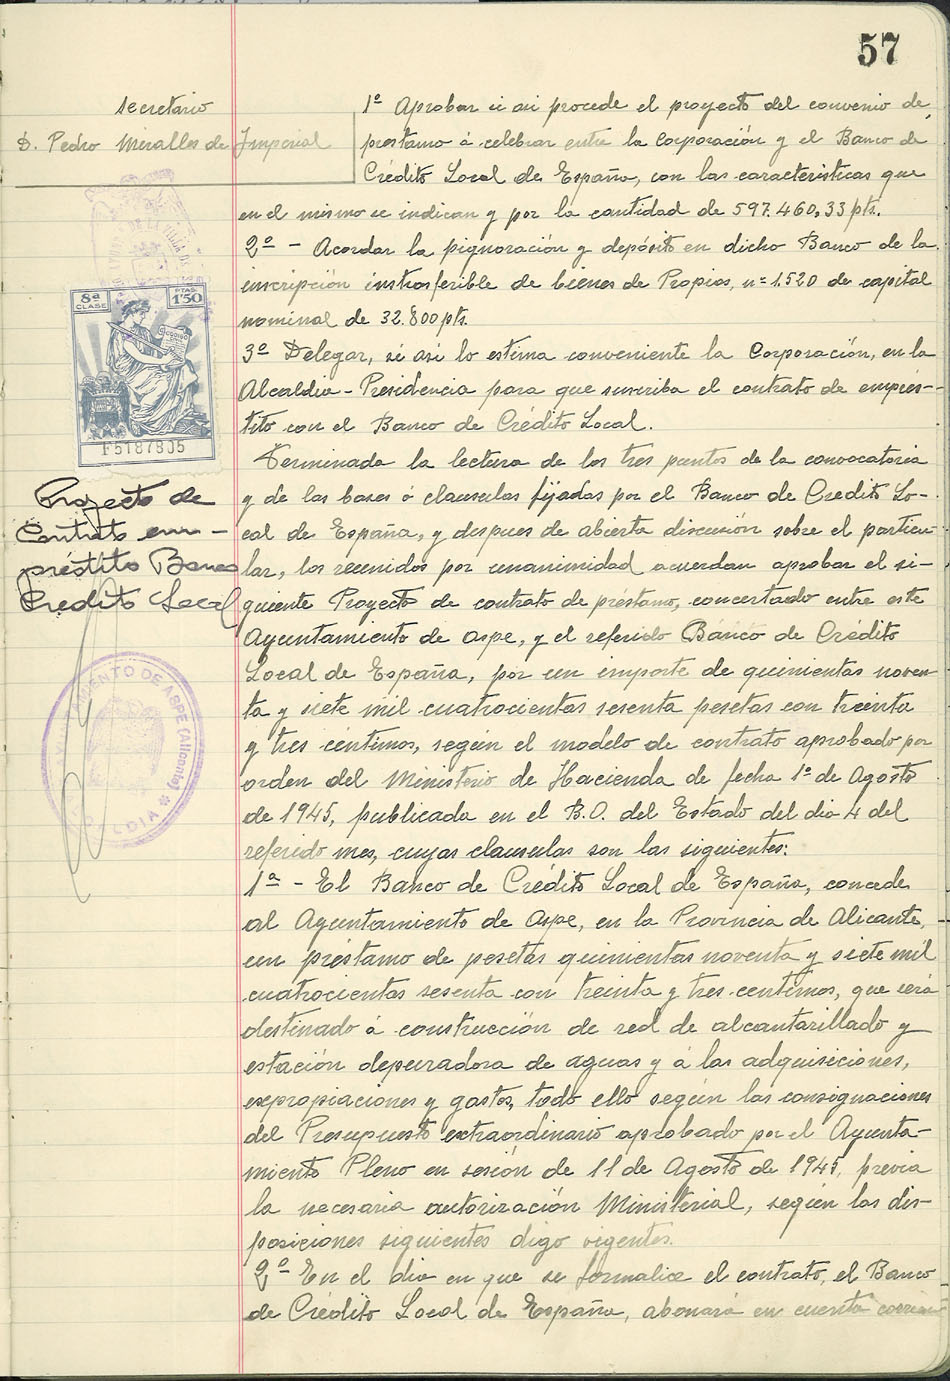 57
secretario
D. Pedro Miralles de Imperial
1º Aprobar si asi procede el proyecto del convenio de
prestamo á celebrar entre la Corporación y el Banco de
Crédito Local de España, con las caracteristicas que
en el mismo se indican y por la cantidad de 597.460,33 pts.
2º - Acordar la pignoración y depósito en dicho Banco de la
inscripción instrosferible de bienes de Propios, nº 1.520 de capital
nominal de 32.800 pts.
3º Delegar, si asi lo estima conveniente la Corporación, en la
Alcaldia - Presidencia para que suscriba el contrato de emprés-
tito con el Banco de Crédito Local.
Terminada la lectura de los tres puntos de la convocatoria
y de las bases ó clausulas fijadas por el Banco de Credito Lo-
cal de España, y despues de abierta discusión sobre el particu-
lar, los reunidos por unanimidad acuerdan aprobar el si-
guiente Proyecto de contrato de préstamo, concertado entre este
Ayuntamiento de Aspe, y el referido Banco de Crédito
Local de España, por un importe de quinientas noven-
ta y siete mil cuatrocientas sesenta pesetas con treinta
y tres centimos, según el modelo de contrato aprobado por
orden del Ministerio de Hacienda de fecha 1º de Agosto
de 1945, publicada en el B.O. del Estado del dia 4 del
referido mes, cuyas clausulas son las siguientes:
1ª - El Banco de Crédito Local de España, concede
al Ayuntamiento de Aspe, en la Provincia de Alicante,
un préstamo de pesetas quinientas noventa y siete mil
cuatrocientas sesenta con treinta y tres centimos, que será
destinado á construcción de red de alcantarillado y
estación depuradora de aguas y á las adquisiciones,
expropiaciones y gastos, todo ello según las consignaciones
del Presupuesto extraordinario aprobado por el Ayunta-
miento Pleno en sesión de 11 de Agosto de 1945, previa
la necesaria autorización Ministerial, según las dis-
posiciones siguientes digo vigentes.
2ª En el dia en que se formalice el contrato, el Banco
de Crédito Local de España, abonará en cuenta corrient
8ª CLASE
PTAS. 1'50
F5187805
Proyecto de
Contrato em-
préstito Banco
Credito Local
AYUNTAMIENTO DE ASPE (Alicante)
ALCALDIA